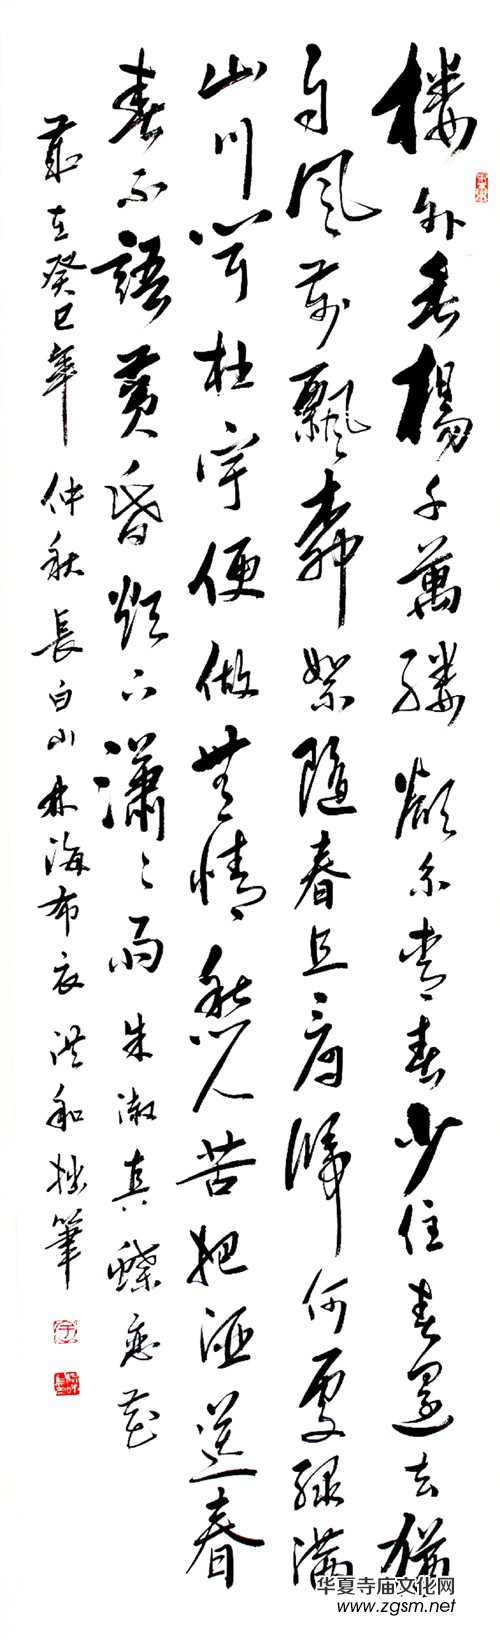 楼外垂楊千萬縷欲系青春少住春還去猶
自風前飄柳絮隨春且看歸何處綠滿
山川聞杜宇便做無情愁人苦把酒送春
春不語黃昏卻下瀟〻雨朱淑真蝶恋花
歲在癸巳年仲秋長白山林海布衣洪和拙筆
华夏寺庙文化网
www.zgsm.net